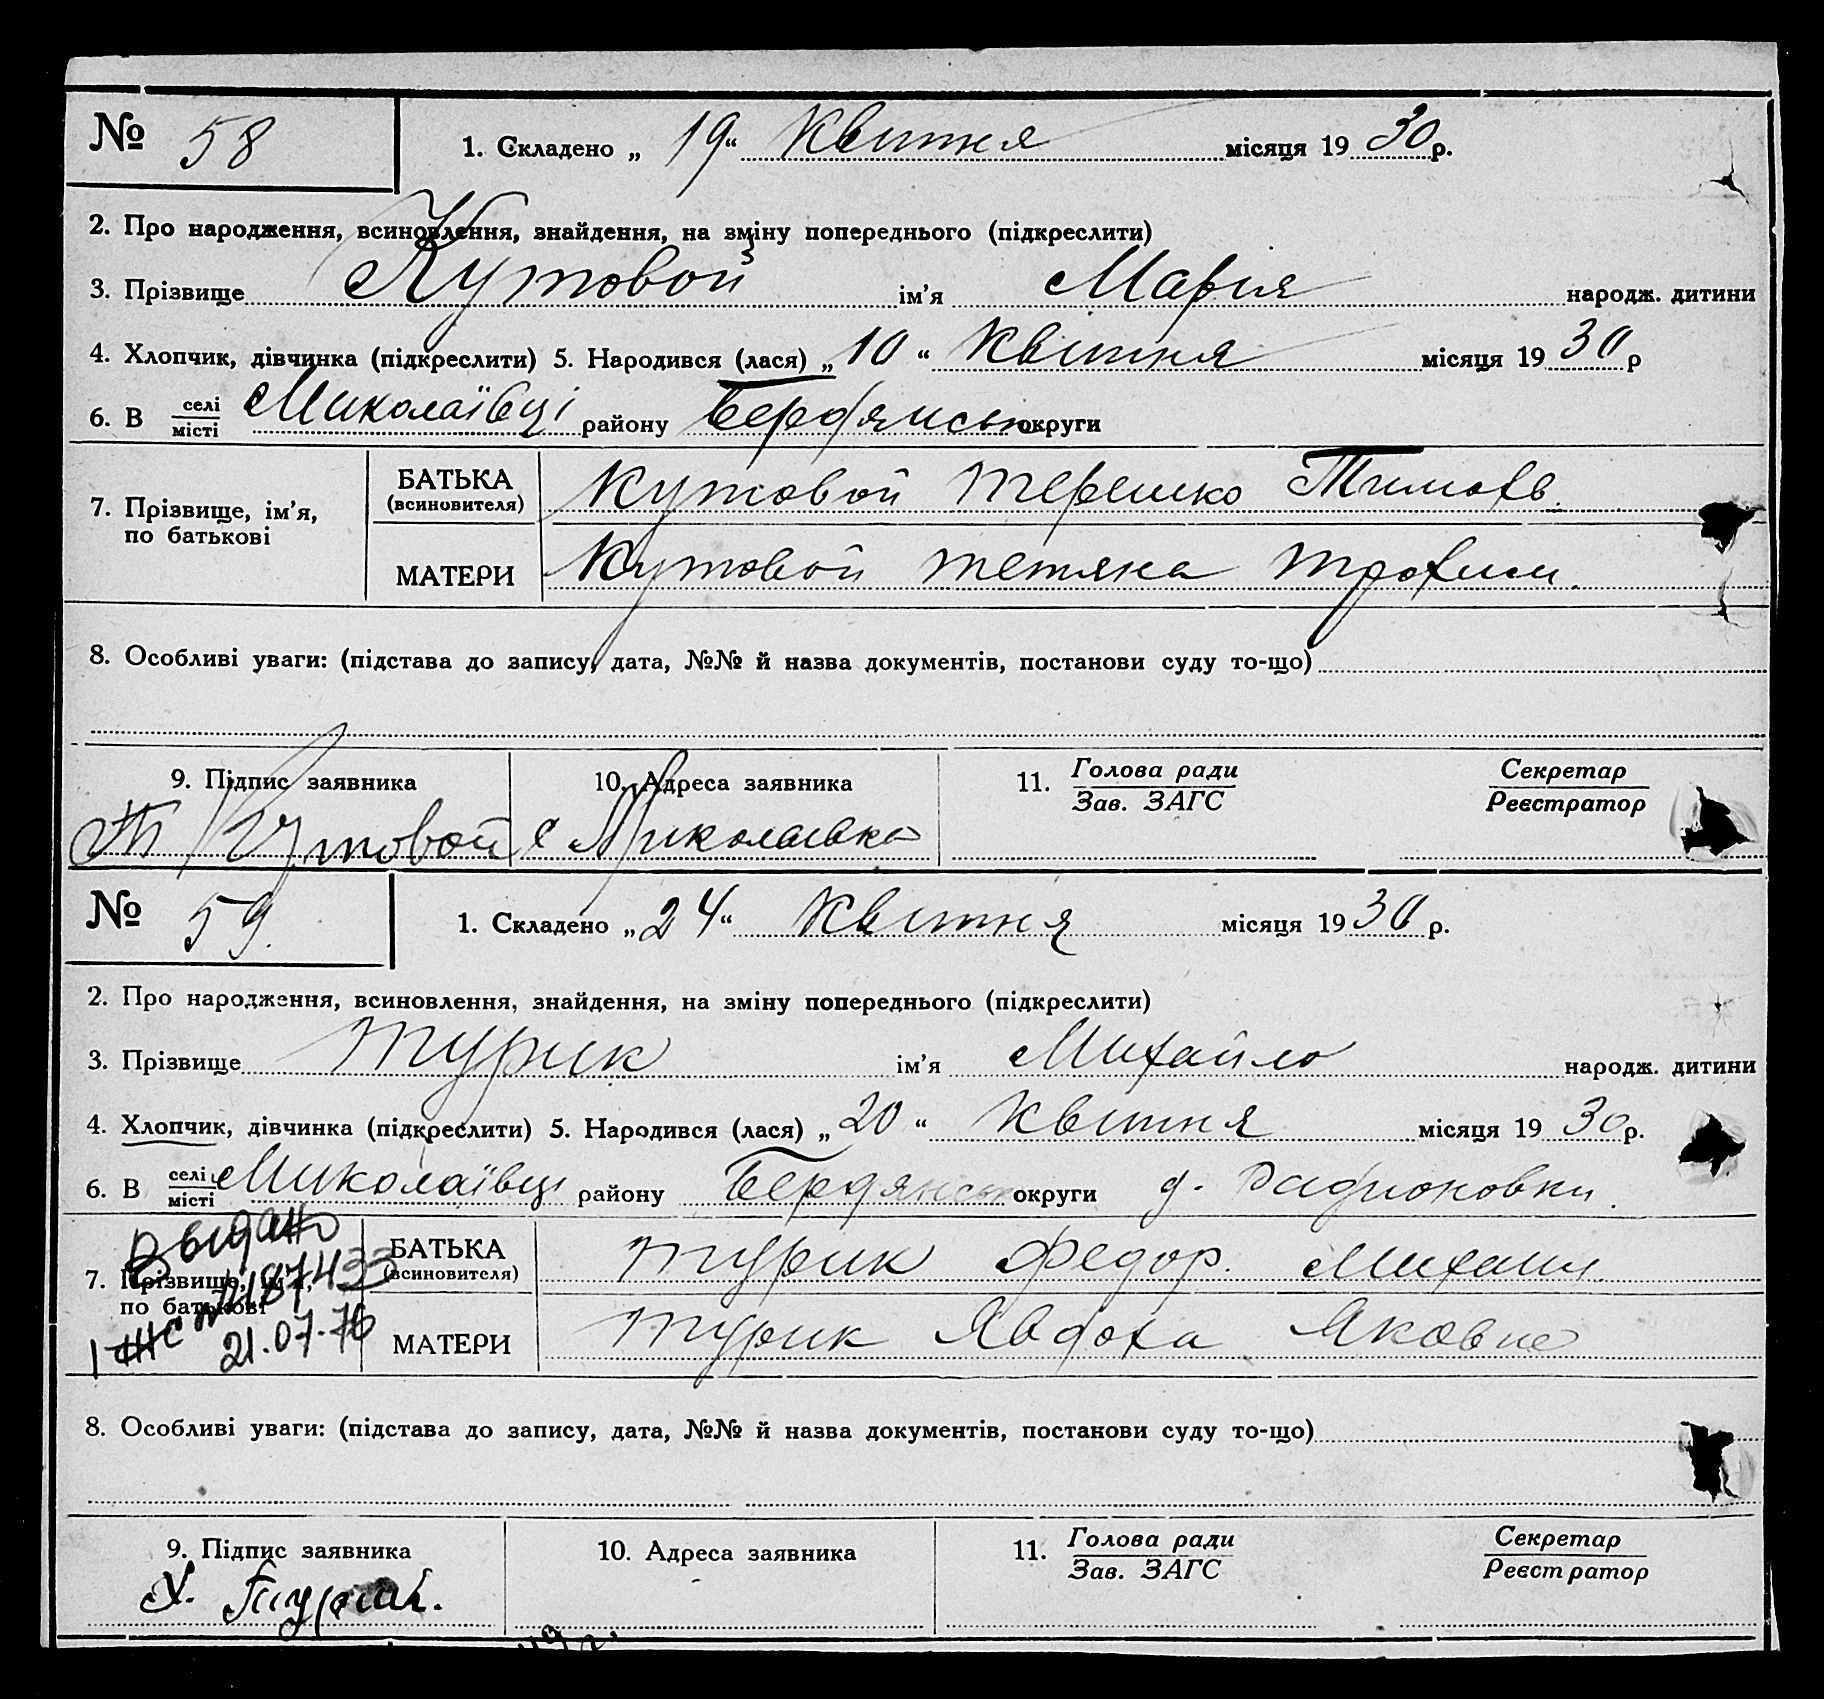 № 58 1. Складено „ 19 “ Квитня місяця 19 30 р.
2. Про народження, всиновлення, знайдення, на зміну попереднього (підкреслити)
3. Прізвище Кутовой ім’я Марія народж. дитини
4. Хлопчик, дівчинка (підкреслити) 5. Народився (лася) „ 10 “ Квітня місяця 19 30 р
6. В селі місті Миколаївці району Бердянськ округи
7. Прізвище, ім’я, по батькові
БАТЬКА (всиновителя) Кутовой Терешко Тимофе.
МАТЕРИ Кутовой Тетяна Трофим.
8. Особливі уваги: (підстава до запису, дата, №№ й назва документів, постанови суду то-що)
9. Підпис заявника 10. Адреса заявника 11. Голова ради Зав. ЗАГС Секретар Реєстратор
Т Кутовой с Миколаївка
№ 59. 1. Складено „ 24 “ Квитня місяця 19 30 р.
2. Про народження, всиновлення, знайдення, на зміну попереднього (підкреслити)
3. Прізвище Турик ім’я Михайло народж. дитини
4. Хлопчик, дівчинка (підкреслити) 5. Народився (лася) „ 20 “ Квитня місяця 19 30 р.
6. В селі місті Миколаївці району Бердянськ округи д.
Выдано
7. Прізвище, ім’я, по батькові
187433
21.07.76
БАТЬКА (всиновителя) Турик Федор. Михаил.
МАТЕРИ Турик Явдоха Яковне
8. Особливі уваги: (підстава до запису, дата, №№ й назва документів, постанови суду то-що)
9. Підпис заявника 10. Адреса заявника 11. Голова ради Зав. ЗАГС Секретар Реєстратор